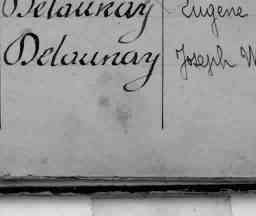 Delaunay Eugene
Delaunay Joseph